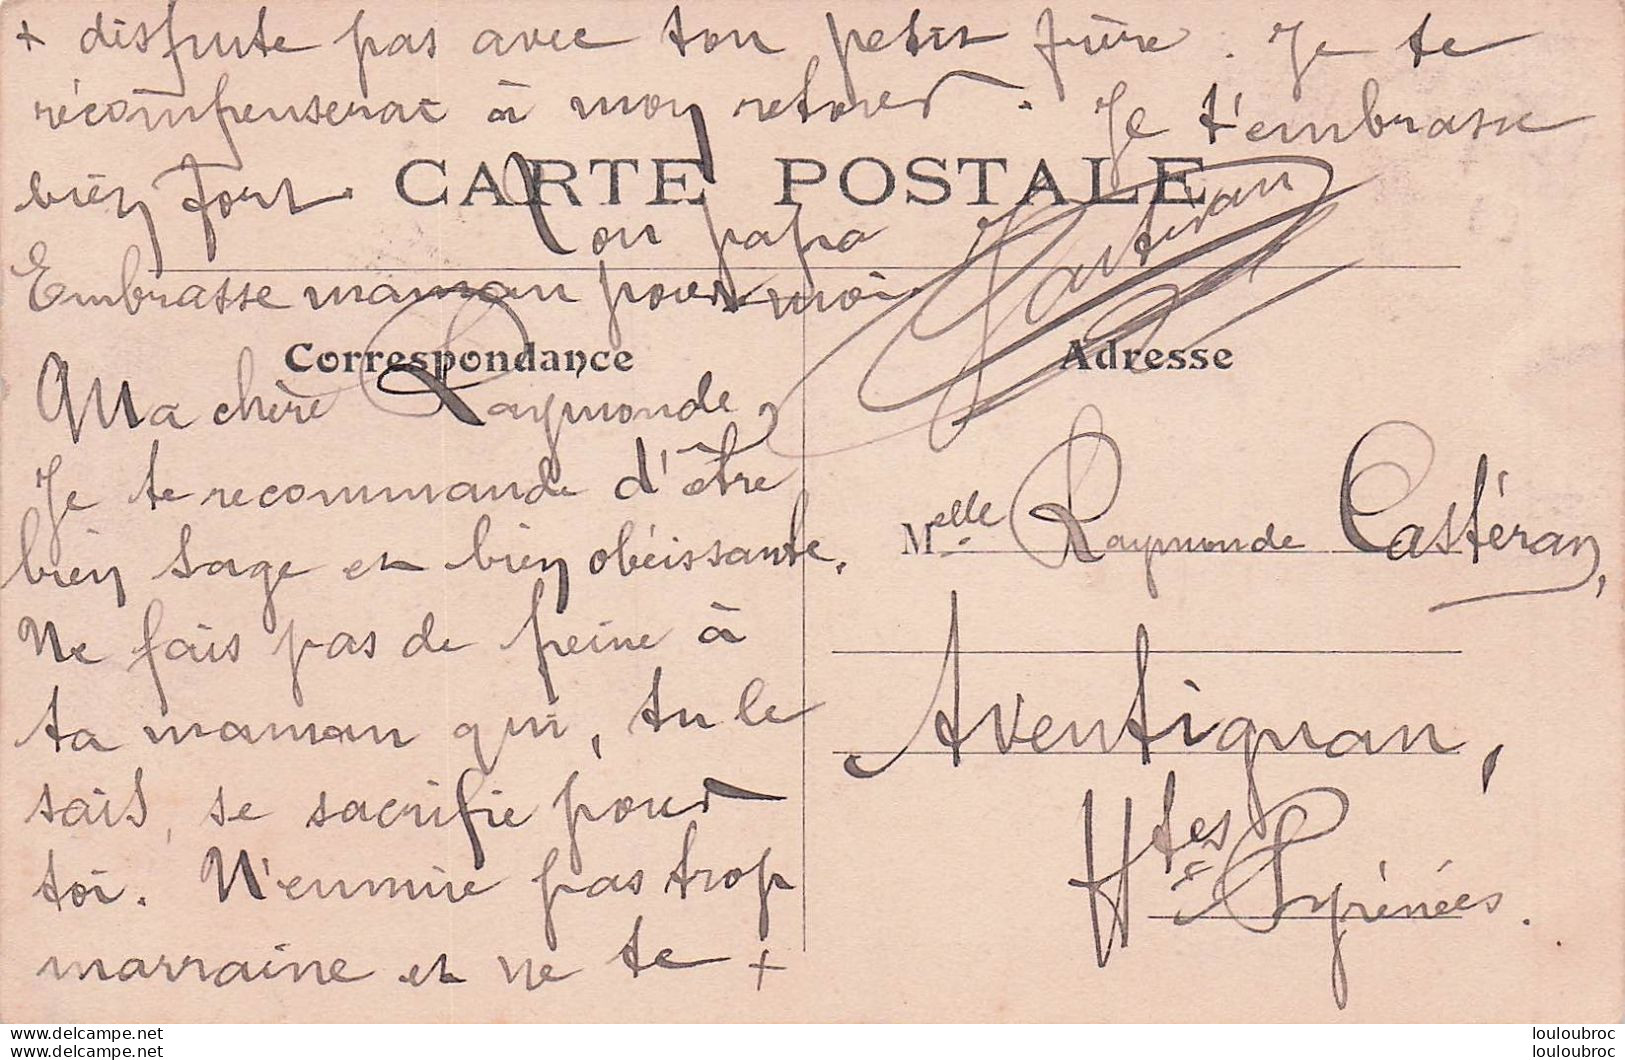 + dispute pas avec ton petit frère. Je te
récompenserai à mon retour. Je t'embrasse
bien fort.
CARTE POSTALE
Ton papa
Castéran
Embrasse maman pour moi.
Correspondance
Ma chère Raymonde,
Je te recommande d'être
bien sage et bien obéissante.
Ne fais pas de peine à
ta maman qui, tu le
sais, se sacrifie pour
toi. N'ennuie pas trop
marraine et ne te +
Adresse
Melle Raymonde Castéran,
Aventignan,
Htes Pyrénées.
delcampe.net
delcampe.net
louloubroc
louloubroc